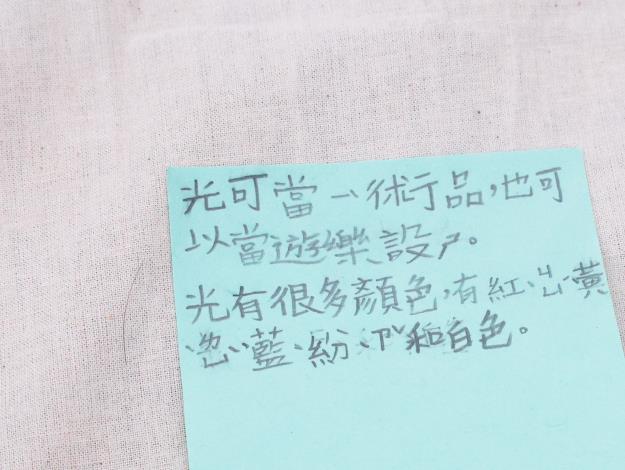 光可當ㄧˋ術品，也可
以當遊樂設ㄕ。
光有很多顏色，有紅、、黃
、、藍、紛、和白色。